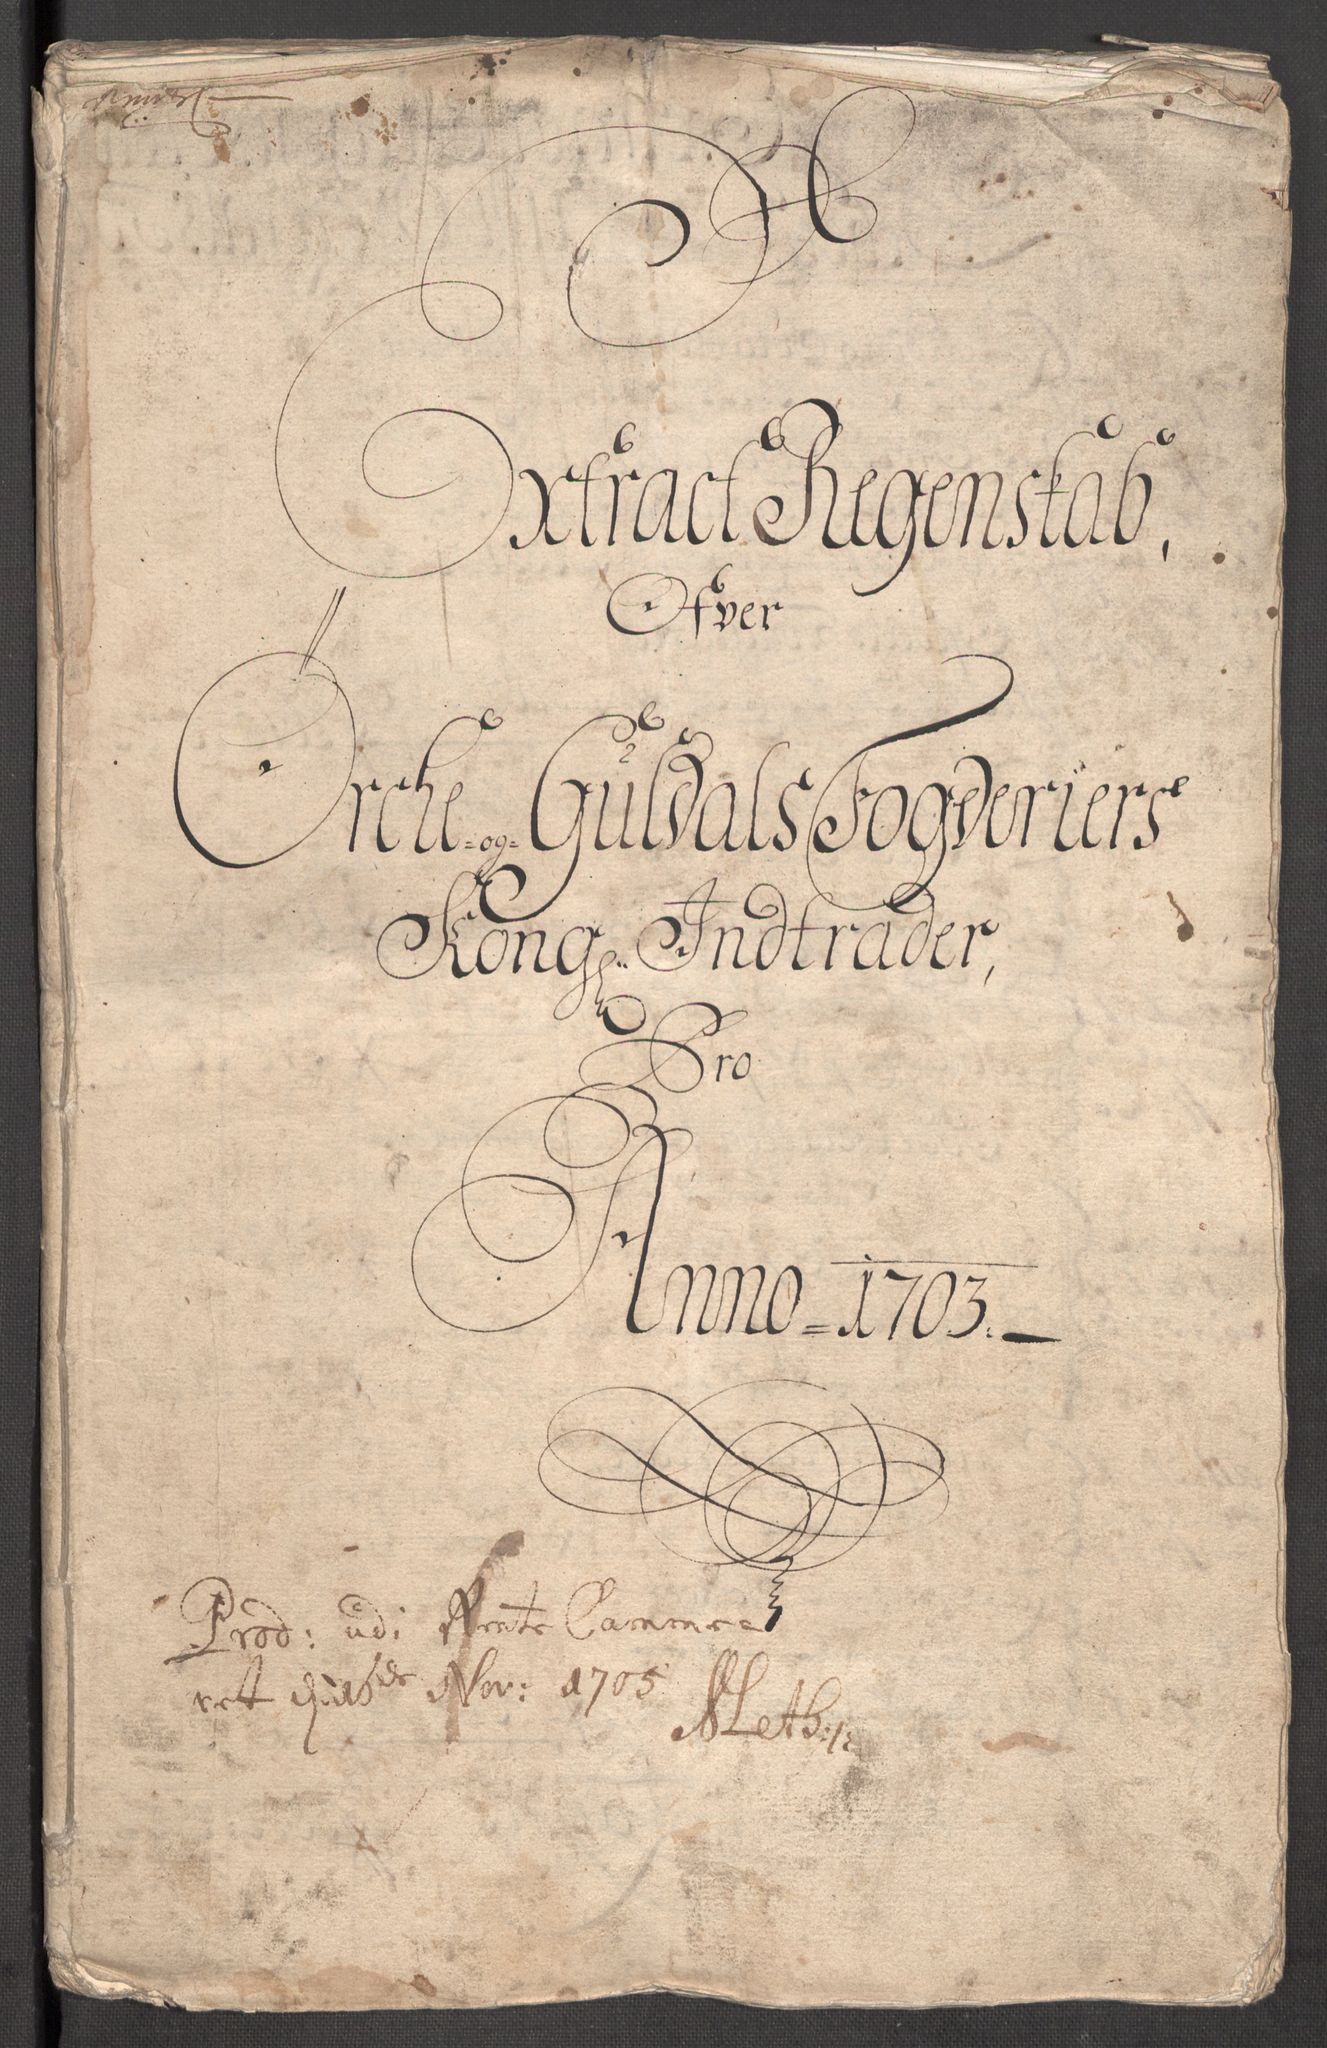 Extract Regenskab,
Ofver
Orche =og= Guldals Fogderiers
Kongl: Indtrader,
Pro
Anno = 1703.
Prod: udi Rente Cammer
rett d: 16de Nov: 1705